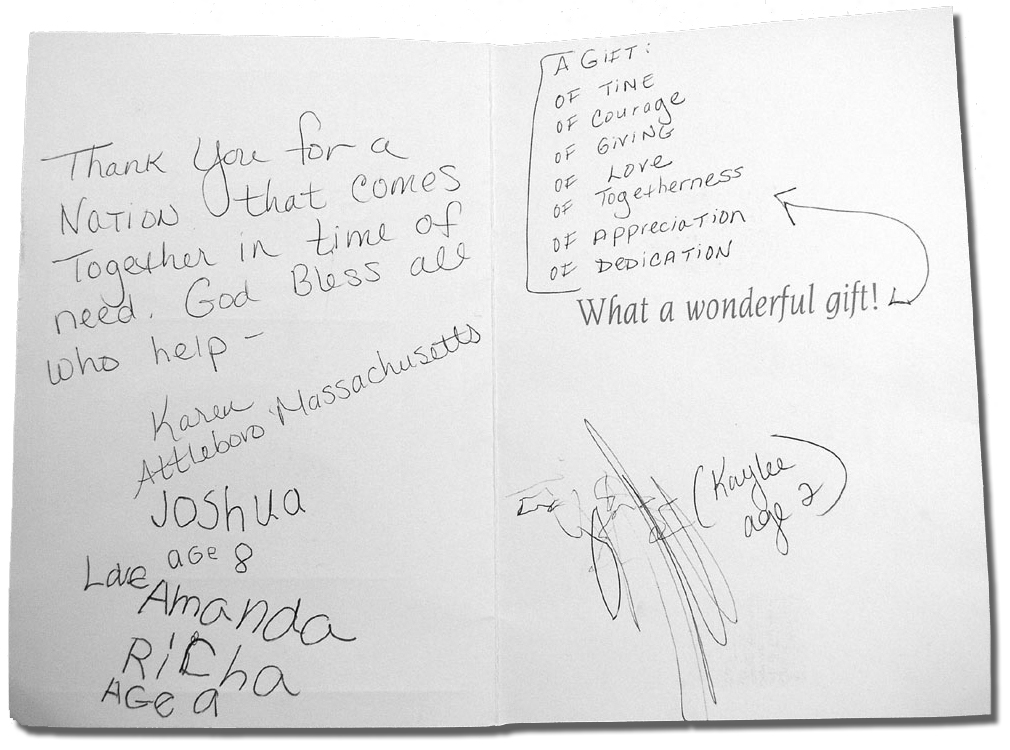 Thank You for a
Nation that comes
Together in time of
need. God Bless all
who help -
Karen
Attleboro Massachusetts
Joshua
age 8
Love
Amanda
Richa
AGe 9
A GIFT:
OF TINE
OF Courage
OF GIVING
OF Love
OF Togetherness
OF Appreciation
OF DEDICATION
What a wonderful gift!
(Kaylee
age 2)